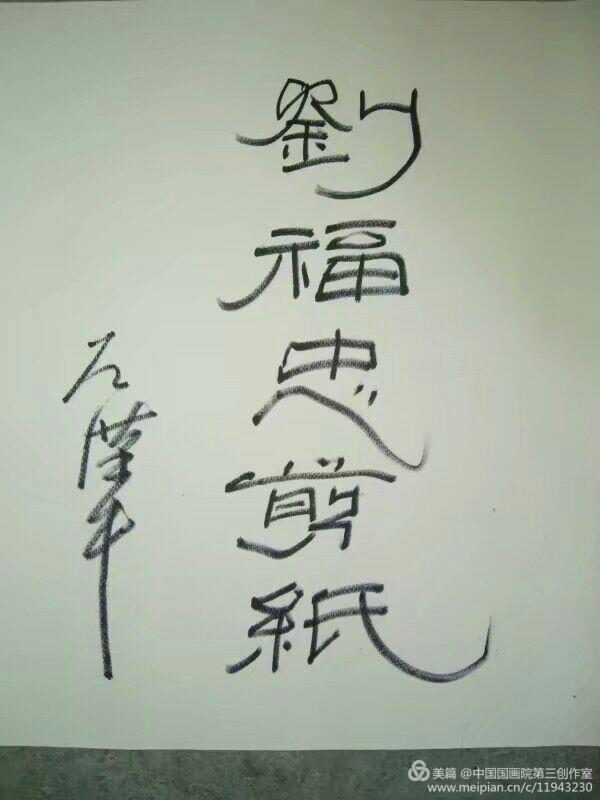 劉福忠剪紙
美篇 @中国国画院第三创作室
www.meipian.cn/c/11943230